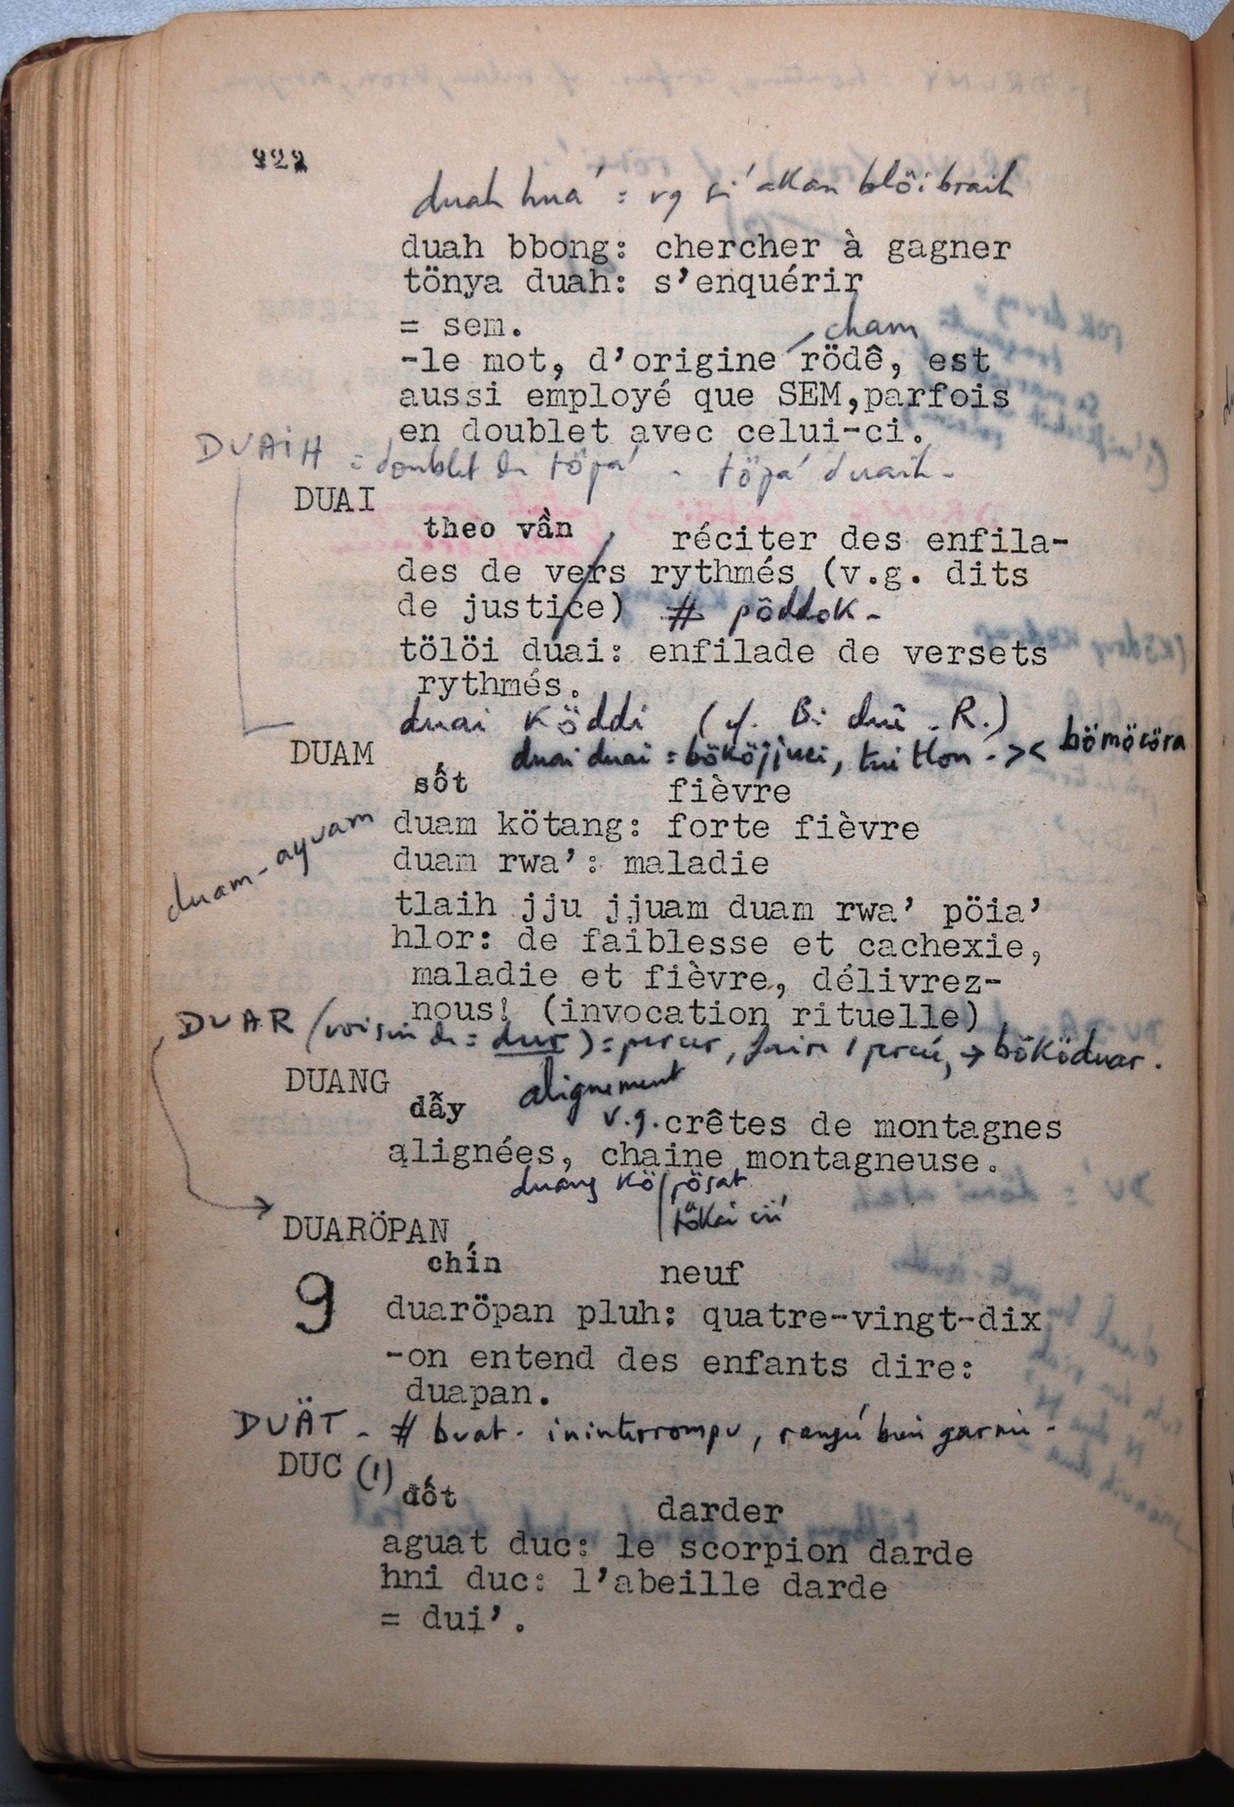 222
duah hua' : vg si' akan blöi braih
duah bbong: chercher à gagner
tönya duah: s'enquérir
= sem.
cham
-le mot, d'origine rödê, est
aussi employé que SEM,parfois
en doublet avec celui-ci.
DUAIH = doublet de töpa' - töpa' duaih -
DUAI
theo vần réciter des enfila-
des de vers rythmés (v.g. dits
de justice) # pöddok -
tölöi duai: enfilade de versets
rythmés.
duai köddi (cf. Bi duê . R.)
duai duai = bököjjuei, tui tlon . >< bömöcöra
DUAM
sốt fièvre
duam kötang: forte fièvre
duam-ayuam
duam rwa': maladie
tlaih jju jjuam duam rwa' pöia'
hlor: de faiblesse et cachexie,
maladie et fièvre, délivrez-
nous! (invocation rituelle)
DUAR (voisin de = dur) = percer, → bököduar.
DUANG
alignement
dẫy v.g. crêtes de montagnes
alignées, chaine montagneuse.
duang kö pösat
tökai
DUARÖPAN
chín neuf
9
duaröpan pluh: quatre-vingt-dix
-on entend des enfants dire:
duapan.
DUÄT - # buat - ininterrompu, rangée bien garnie -
DUC (1)
đốt darder
aguat duc: le scorpion darde
hni duc: l'abeille darde
= dui'.